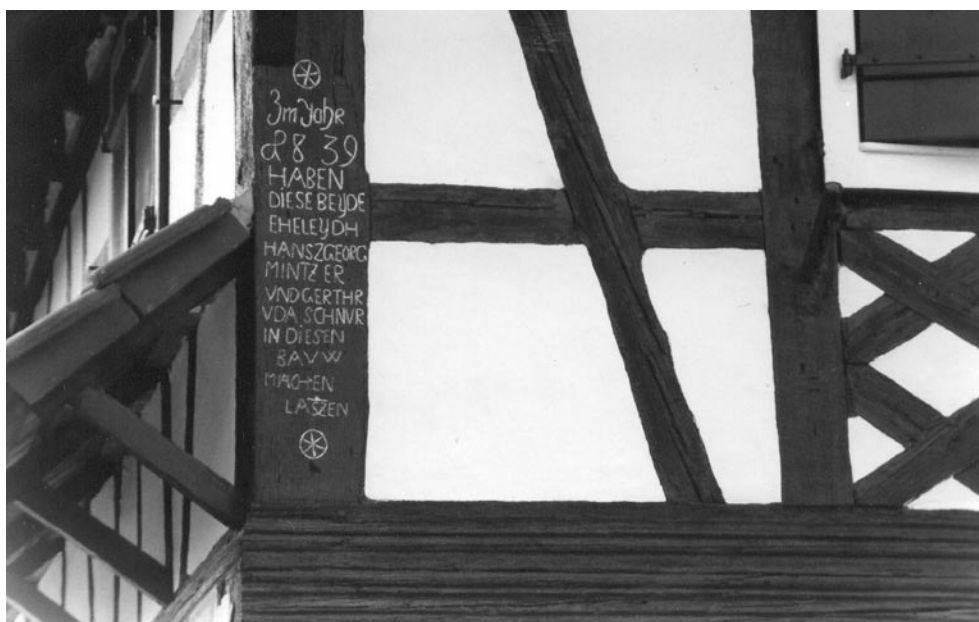 Im Jahr
1839
HABEN
DIESE BEYDE
EHELEYDH
HANSZGEORG
MINTZER
VNDGERTHR
VDA SCHNVR
IN DIESEN
BAVW
MACHEN
LASZEN